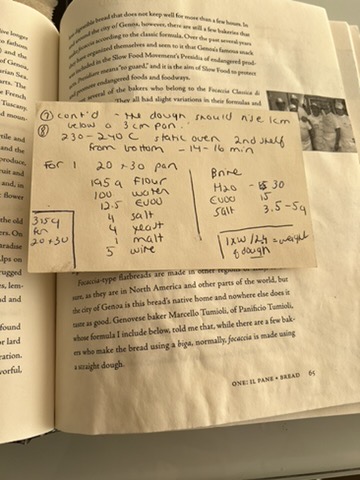 ve longer
fathom
) and the
of Genoa
arian Sea.
The
e French
Tuscany.
d moun-
rtile and
the
produce,
ruit and
and, in
flower
the old
ers. On
paradise
lps on
rugged
es, lem-
nd and
found
or lard
eration.
vorful,
digestible bread that does not keep well for more than a few hours. In
around the city of Genoa, however, there are still a few bakeries that
focaccia according to the classic formula. Over the past several years
have organized themselves and seen to it that Genoa's famous snack
included in the Slow Food Movement's Presidia of endangered prod-
means "to guard," and it is the aim of Slow Food to protect
promote endangered foods and foodways.
several of the bakers who belong to the Focaccia Classica di
They all had slight variations in their formulas and
⑦ cont'd - the dough should rise 1cm
below a 3cm pan.
⑧ 230-240 C static oven 2nd shelf
from bottom - 14-16 min
For 1 20x30 pan
195g flour
100 water
12.5 EVOO
4 salt
4 yeast
1 malt
5 wine
315g
for
20x30
Brine
H2O - 30
EVOO 15
Salt 3.5-5g
LXW/2 = weight
of dough
Focaccia-type flatbreads are made in other regions
as they are in North America and other parts of the world, but
the city of Genoa is this bread's native home and nowhere else does it
taste as good. Genovese baker Marcello Tumioli, of Panificio Tumioli,
whose formula I include below, told me that, while there are a few bak-
ers who make the bread using a biga, normally, focaccia is made using
a straight dough.
ONE: IL PANE • BREAD 65